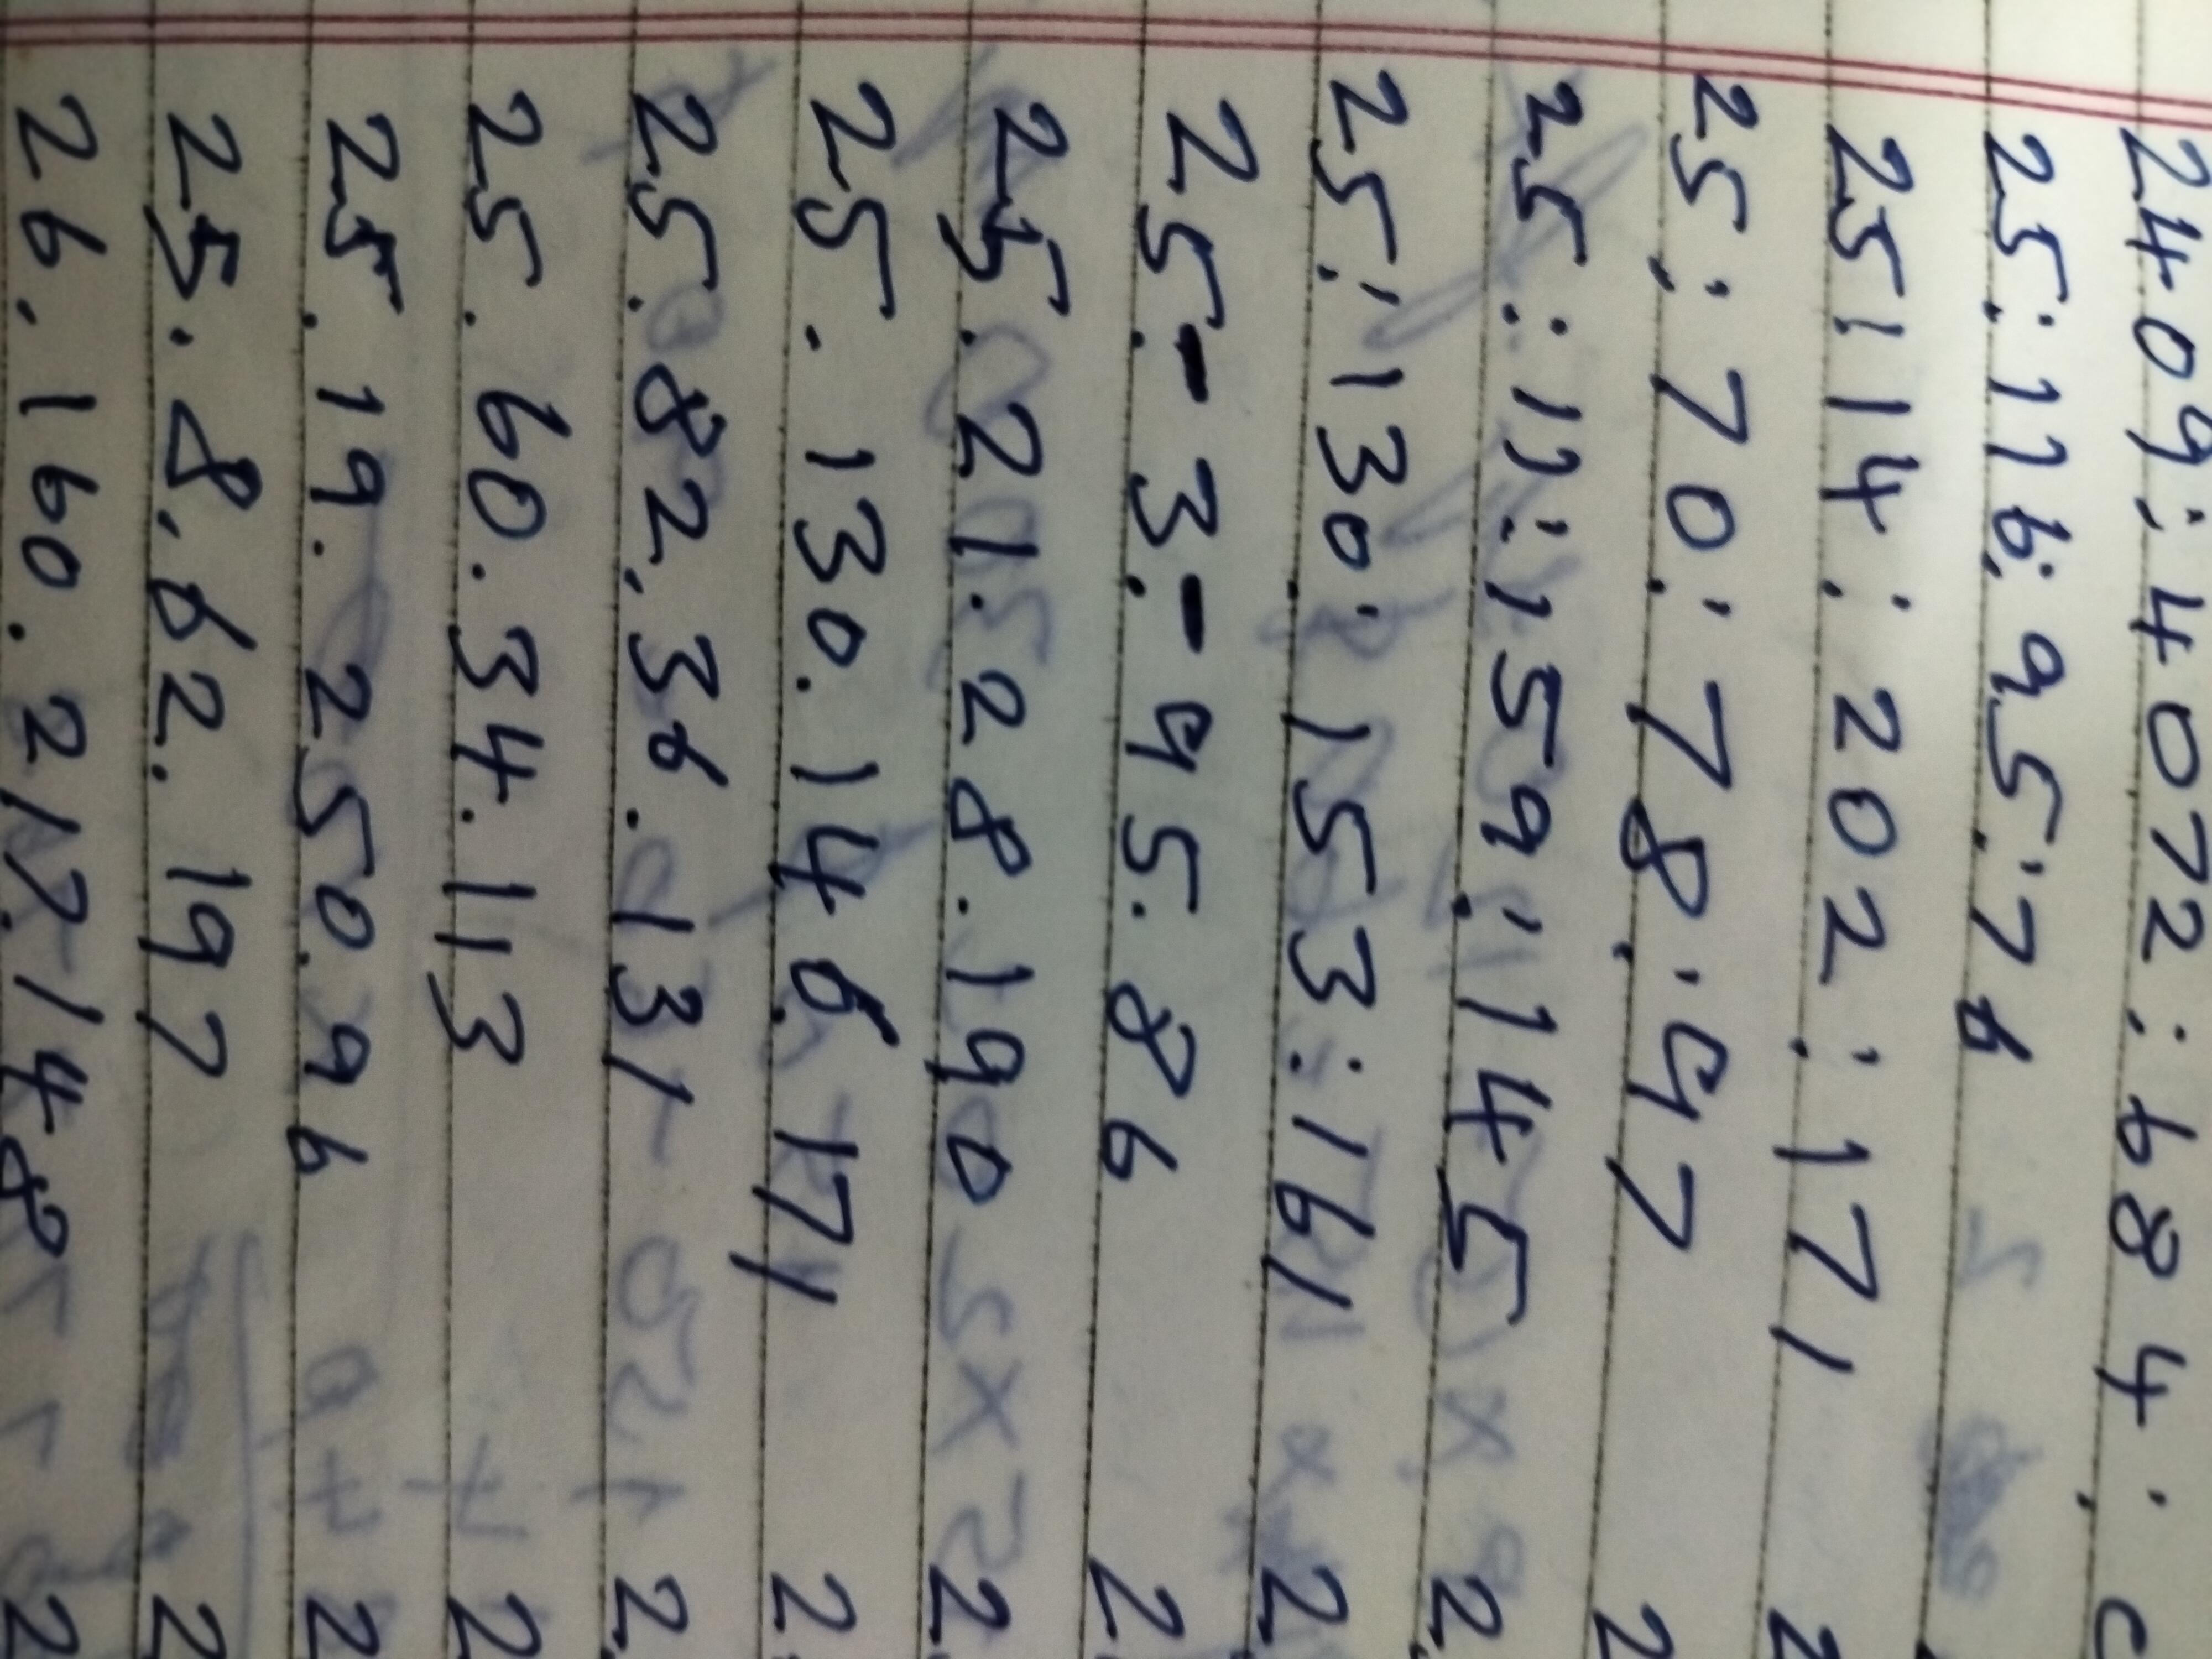 2409:4072:684:
25:116:95:76
25:114:202:171
25:70:78:97
25:11:159:145
25:130:153:161
25.-3.-95.86
25.21.28.190
25.130.146.171
25.82.36.131
25.60.34.113
25.19.250.96
25.8.62.197
26.160.217.148